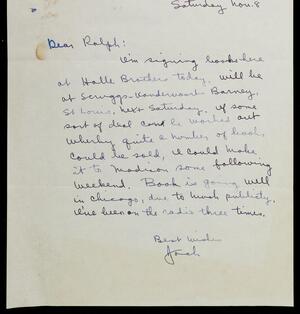 Saturday Nov. 8
Dear Ralph:
I'm signing books here
at Halle Brothers today, will be
at Scruggs-Vandervoort-Barney,
St Louis, next Saturday. If some
sort of deal could be worked out
whereby quite a number of books
could be sold, I could make
it to Madison some following
weekend. Book is going well
in Chicago, due to much publicity.
I've been on the radio three times.
Best wishes